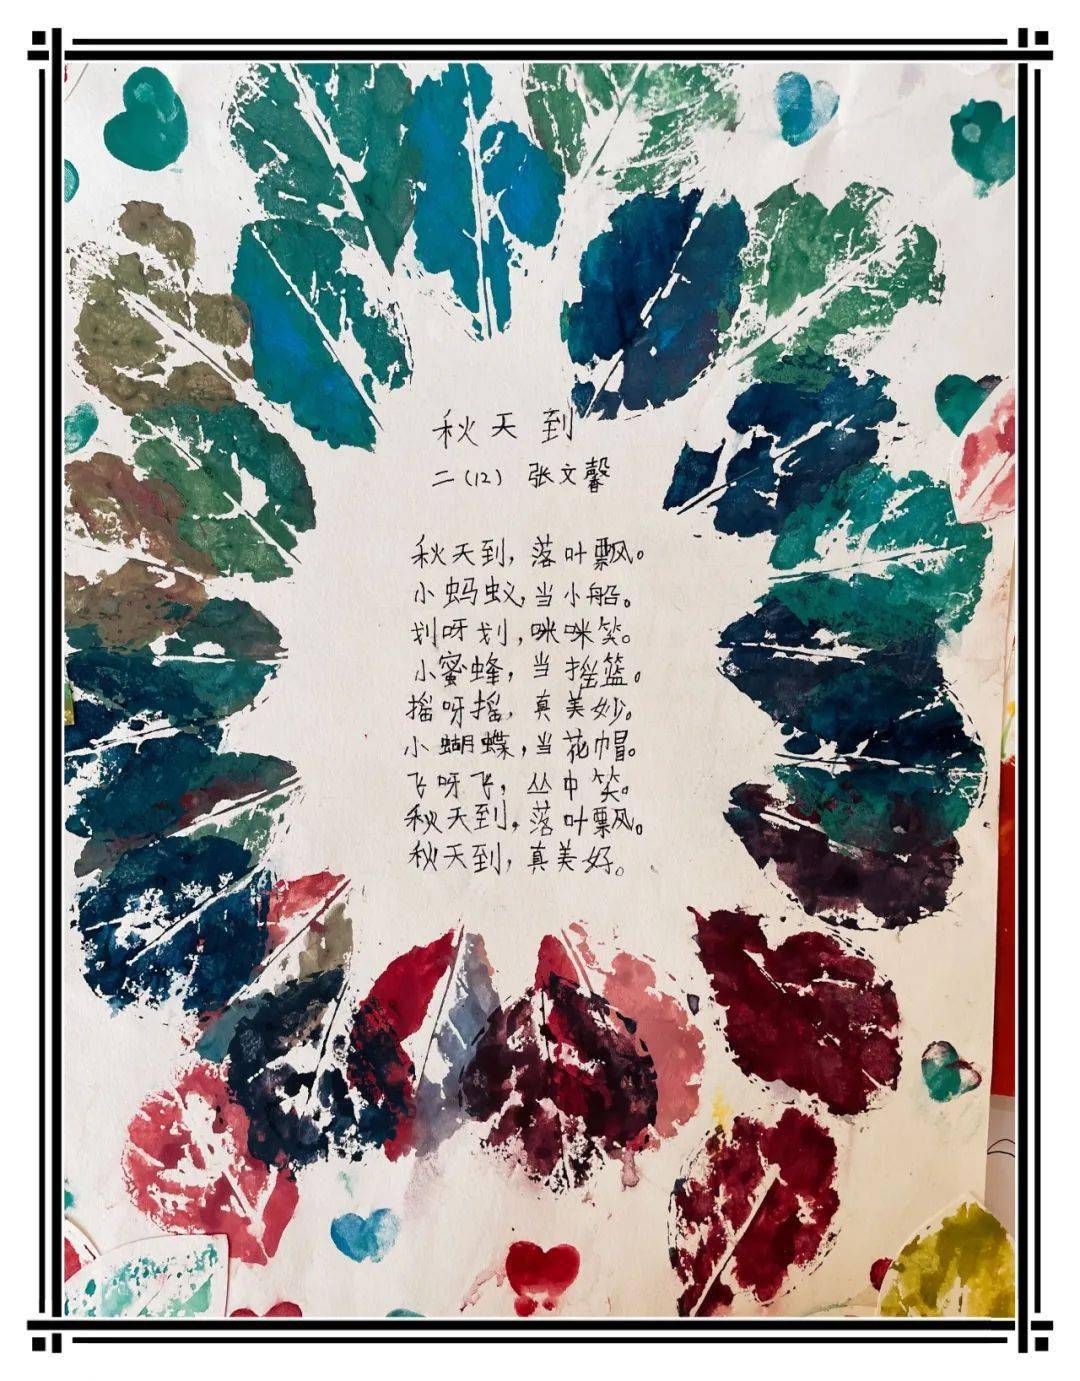 秋天到
二（12） 张文馨
秋天到，落叶飘。
小蚂蚁，当小船。
划呀划，咪咪笑。
小蜜蜂，当摇篮。
摇呀摇，真美妙。
小蝴蝶，当花帽。
飞呀飞，丛中笑。
秋天到，落叶飘。
秋天到，真美好。